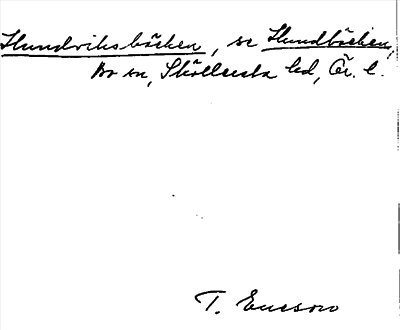 Hundviksbäcken, se Hundbäcken,
Bo sn, Sköllersta hd, Ör. l.
T. Ericsson